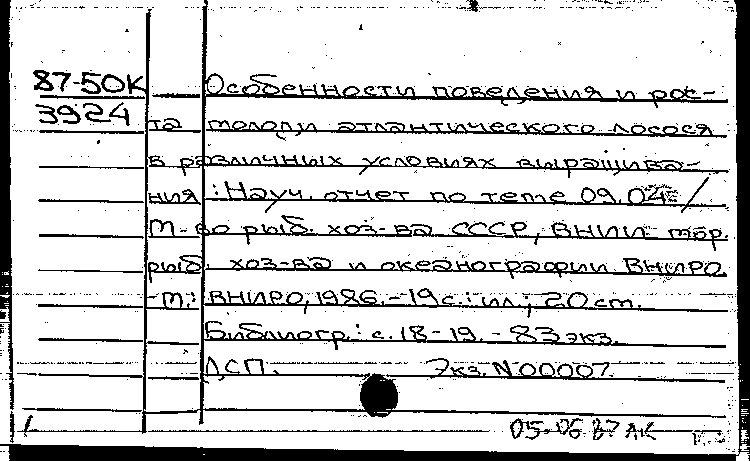 87-50К Особенности поведения и рос-
3924 та молоди атлантического лосося
в различных условиях выращива-
ния : Науч. отчет по теме 09.04 /
М-во рыб. хоз-ва СССР, ВНИИ мор.
рыб. хоз-ва и океанографии ВНИРО.
-М.: ВНИРО, 1986.-19 с.: ил.; 20 cm.
Библиогр.: с. 18-19. - 83 экз.
ДСП. Экз. N 00007.
05-06 87 ЛК